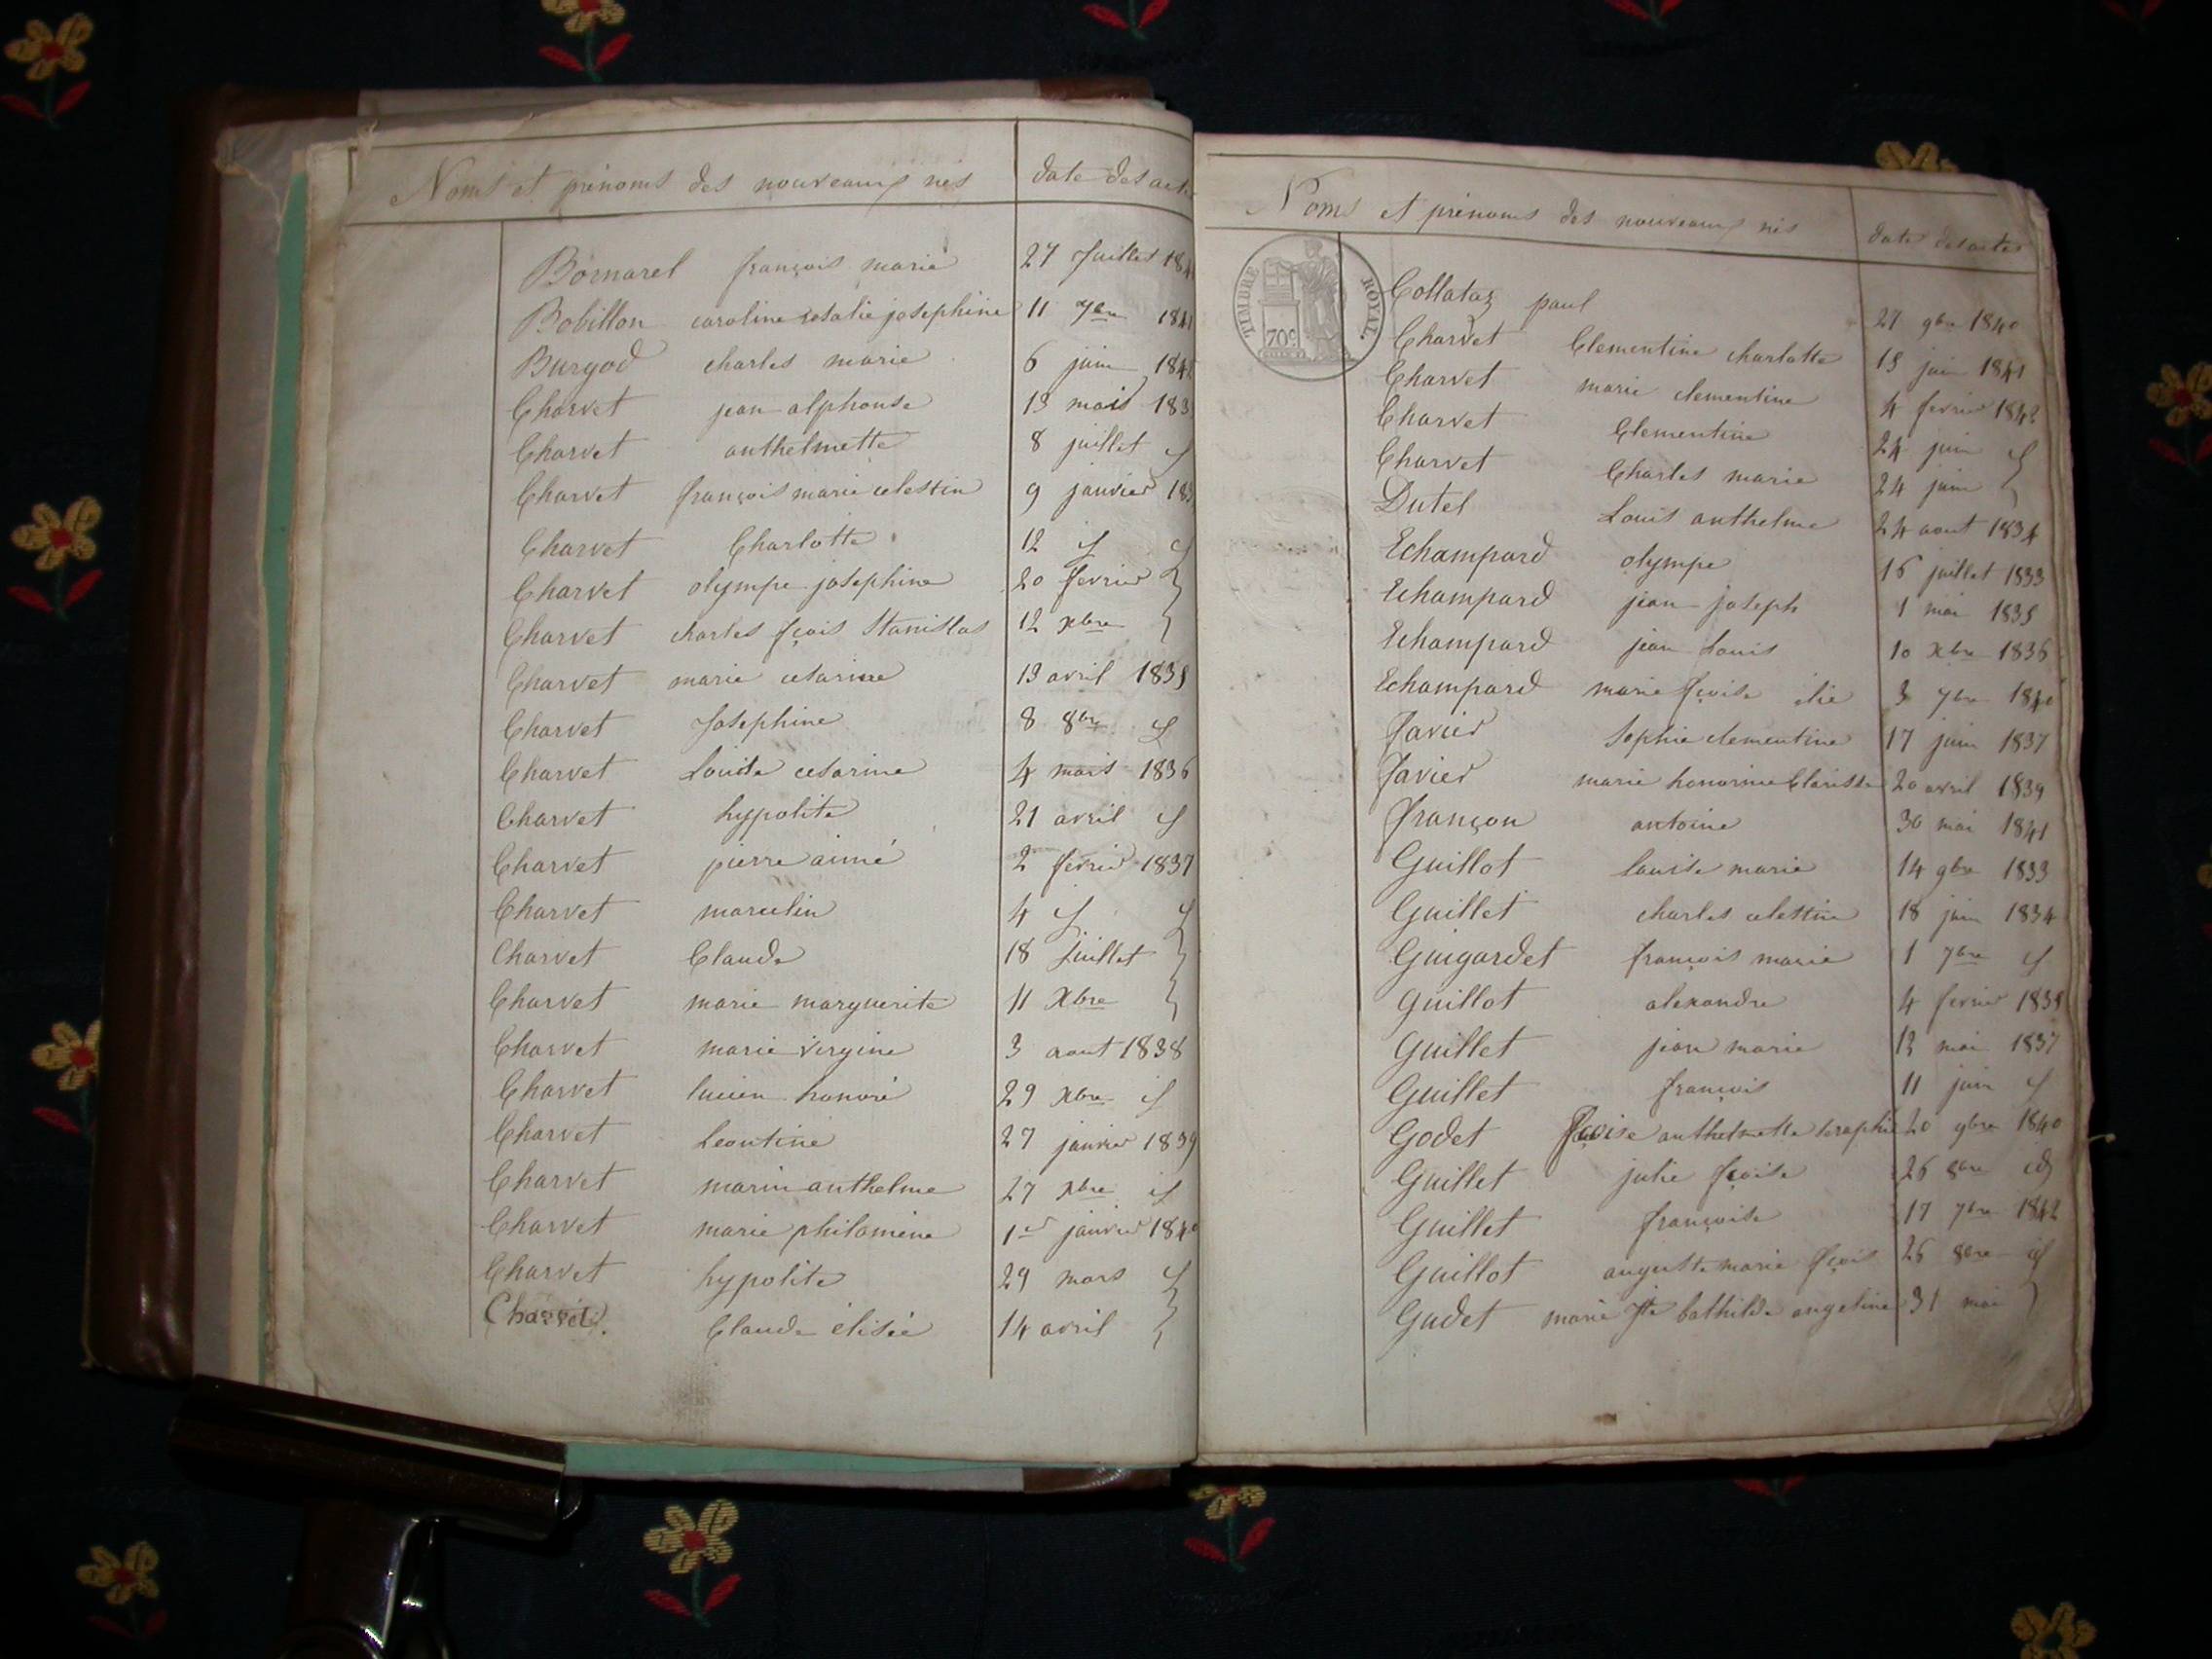 Noms et prénoms des nouveaux nés date des actes
Bornarel françois marie 27 Juillet 184
Bobillon caroline rosalie josephine 11 7bre 1841
Burgod charles marie 6 juin 184
Charvet jean alphonse 13 mars 183
Charvet anthelmette 8 juillet id
Charvet françois marie celestin 9 janvier 183
Charvet Charlotte 12 id id
Charvet olympe josephine 20 fevrier
Charvet charles fçois Stanislas 12 xbre
Charvet marie cesarine 13 avril 1835
Charvet Josephine 8 8bre id
Charvet Louise cesarine 4 mars 1836
Charvet hypolite 21 avril id
Charvet pierre aimé 2 fevrier 1837
Charvet marcelin 4 id id
Charvet Claude 18 Juillet
Charvet marie marguerite 11 Xbre
Charvet marie virgine 3 aout 1838
Charvet lucien honoré 29 xbre id
Charvet Leontine 27 janvier 1839
Charvet marin anthelme 27 xbre id
Charvet marie philomène 1er janvier 1840
Charvet hypolite 29 mars id
Charvet Claude élisée 14 avril
Noms et prénoms des nouveaux nés date des actes
TIMBRE ROYAL
70c
Collataz paul 27 9bre 1840
Charvet Clementine charlotte 13 juin 1841
Charvet marie clementine 4 fevrier 1842
Charvet Clementine 24 juin id
Charvet Charles marie 24 juin
Dutel Louis anthelme 24 aout 1834
Echampard olympe 16 juillet 1833
Echampard jean joseph 1 mai 1835
Echampard jean Louis 10 Xbre 1836
Echampard marie fçoise 3 7bre 1840
Favier Sophie clementine 17 juin 1837
Favier marie honorine Clarisse 20 avril 1839
françon antoine 30 mai 1841
Guillot louise marie 14 9bre 1833
Guillet charles celestin 18 juin 1834
Guigardet françois marie 1 7bre id
Guillot alexandre 4 fevrier 1835
Guillet jean marie 13 mai 1837
Guillet françois 11 juin id
Godet fçoise anthelmette seraphie 20 9bre 1840
Guillet julie fçoise 26 8bre id
Guillet françoise 17 7bre 1842
Guillot auguste marie fçois 26 8bre id
Gudet marie Jte bathilde angeline 31 mai